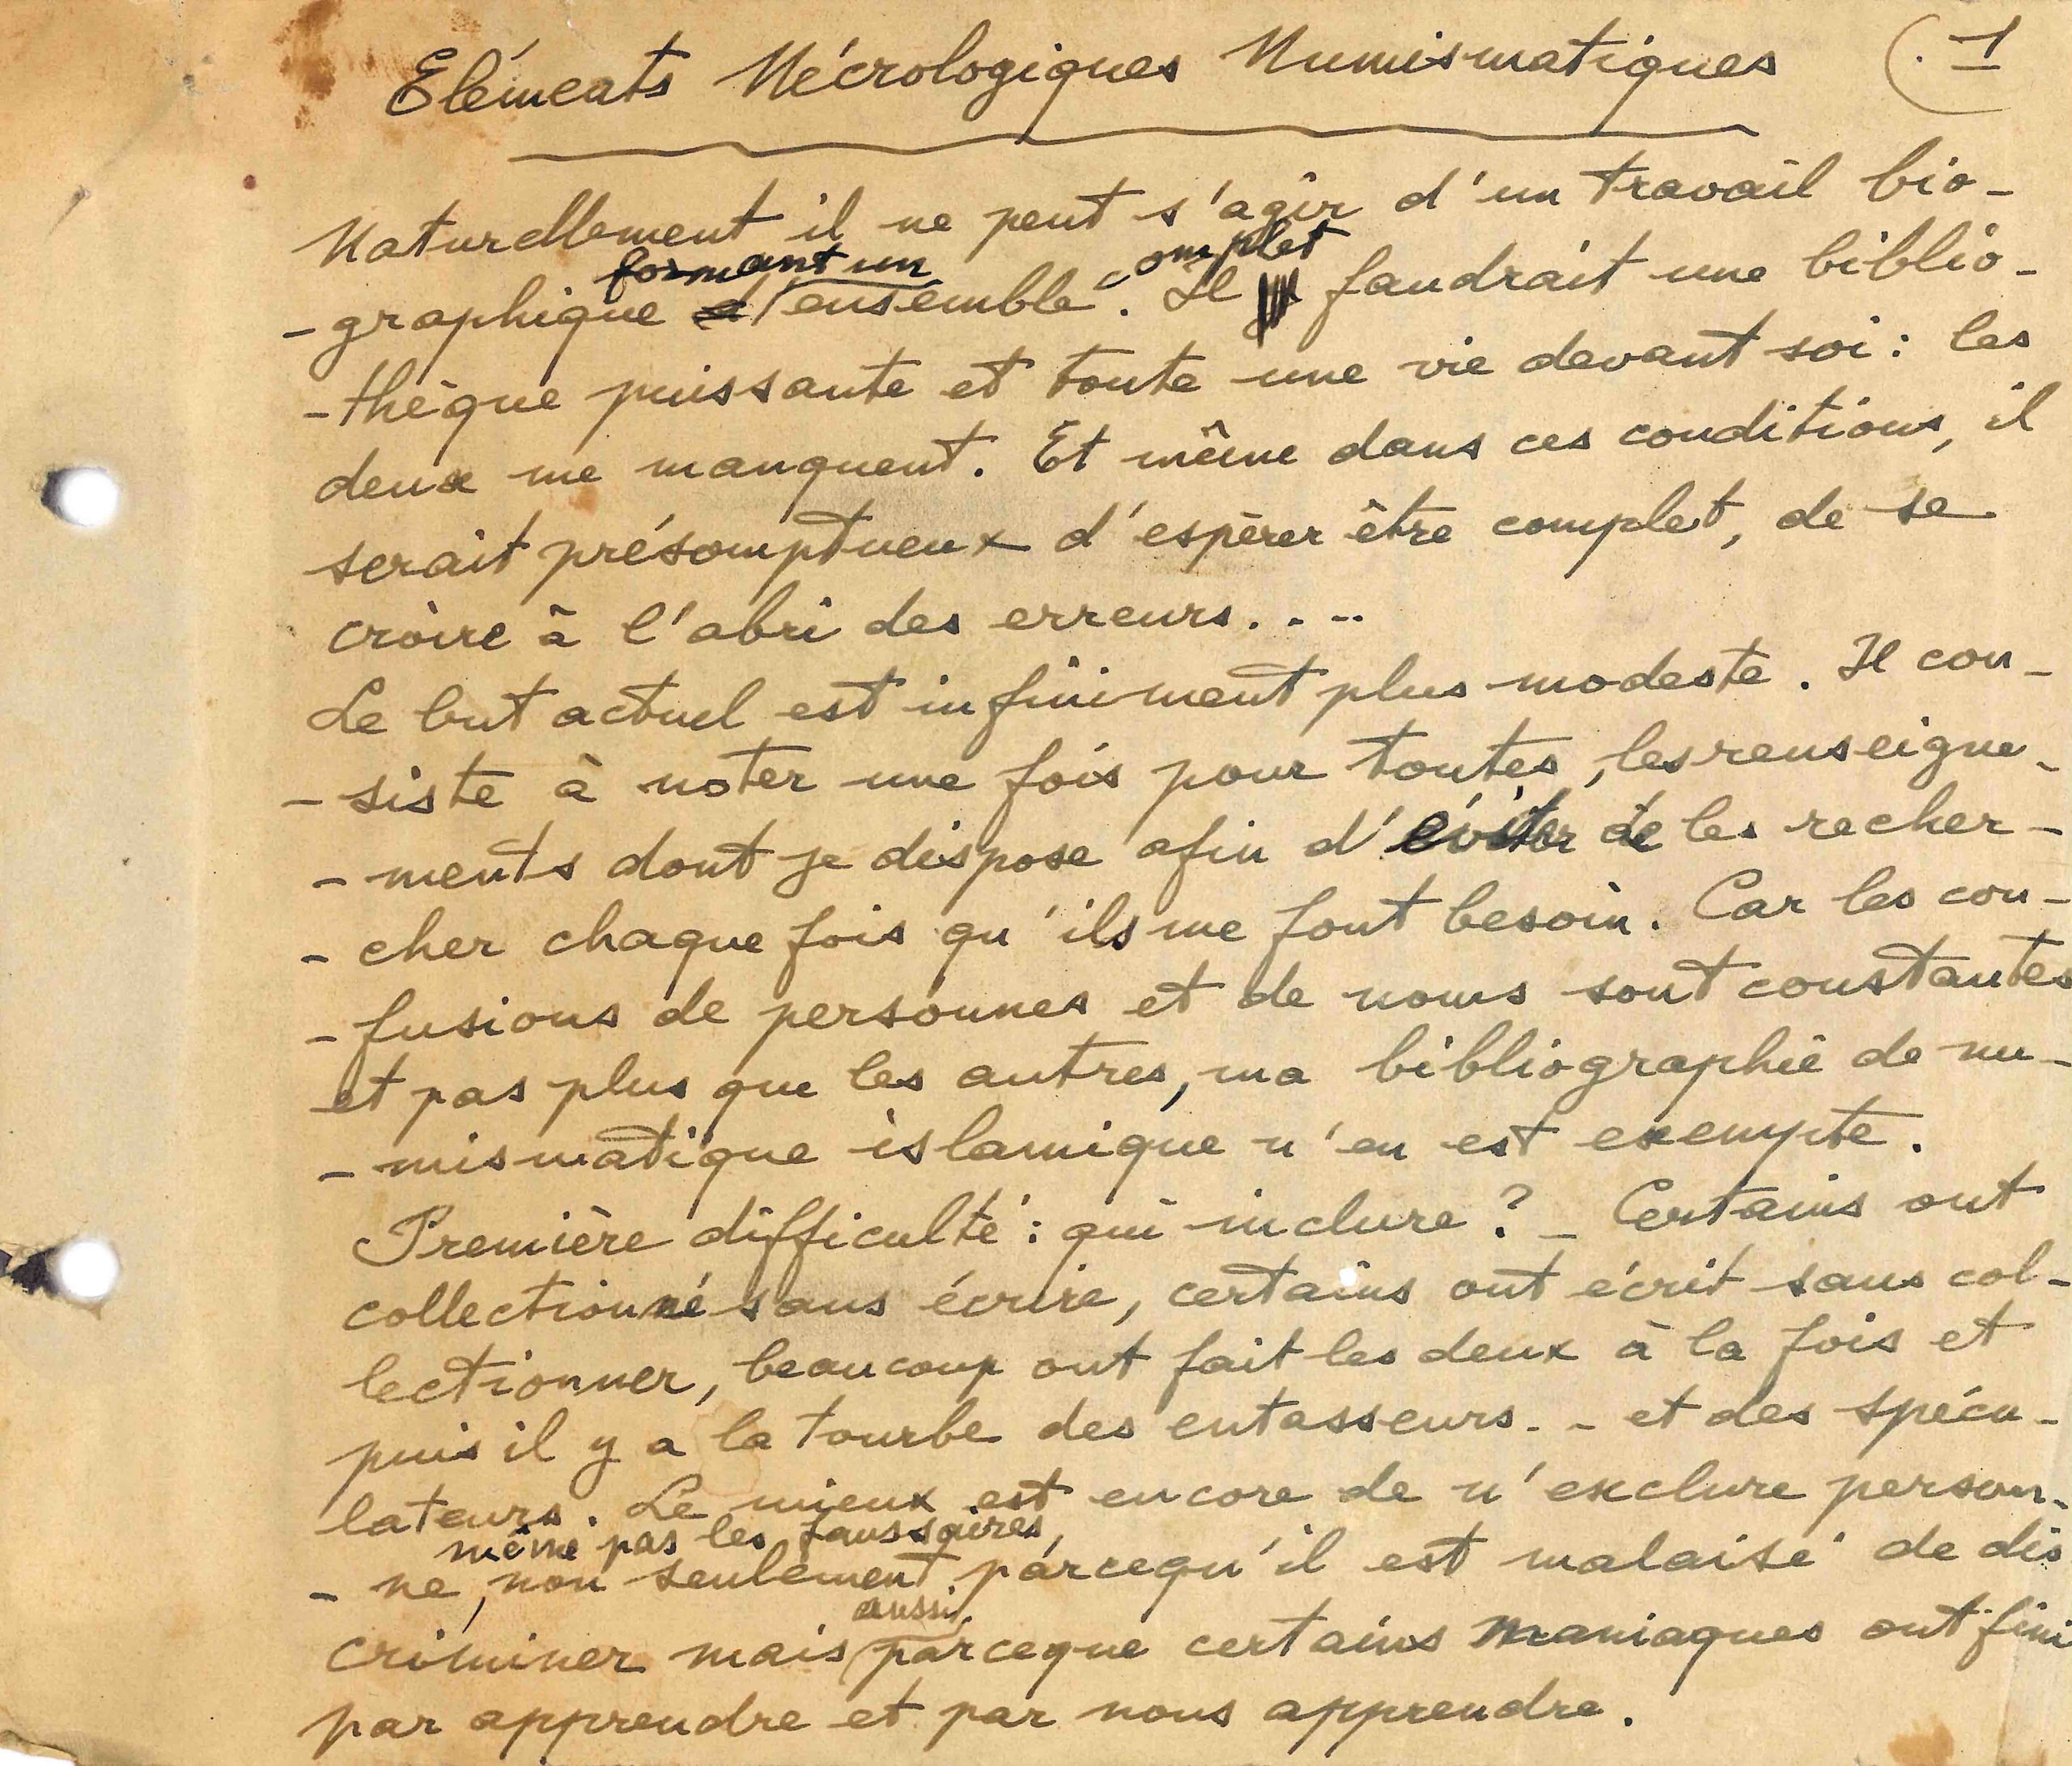 Eléments Nécrologiques Numismatiques (. 1
Naturellement il ne peut s'agir d'un travail bio-
formant un complet
- graphique ensemble. Il faudrait une biblio-
- thèque puissante et toute une vie devant soi : les
deux me manquent. Et même dans ces conditions, il
serait présomptueux d'espérer être complet, de se
croire à l'abri des erreurs....
Le but actuel est infiniment plus modeste. Il con-
- siste à noter une fois pour toutes, les renseigne-
- ments dont je dispose afin d'éviter de les recher-
- cher chaque fois qu'ils me font besoin. Car les con-
- fusions de personnes et de noms sont constantes
et pas plus que les autres, ma bibliographie de nu-
- mismatique islamique n'en est exempte.
Première difficulté : qui inclure ? - Certains ont
collectionné sans écrire, certains ont écrit sans col-
lectionner, beaucoup ont fait les deux à la fois et
puis il y a la tourbe des entasseurs. - et des spécu-
lateurs. Le mieux est encore de n'exclure person-
même pas les faussaires,
- ne, non seulement parcequ'il est malaisé de dis
aussi
criminer mais parceque certains maniaques ont fini
par apprendre et par nous apprendre.